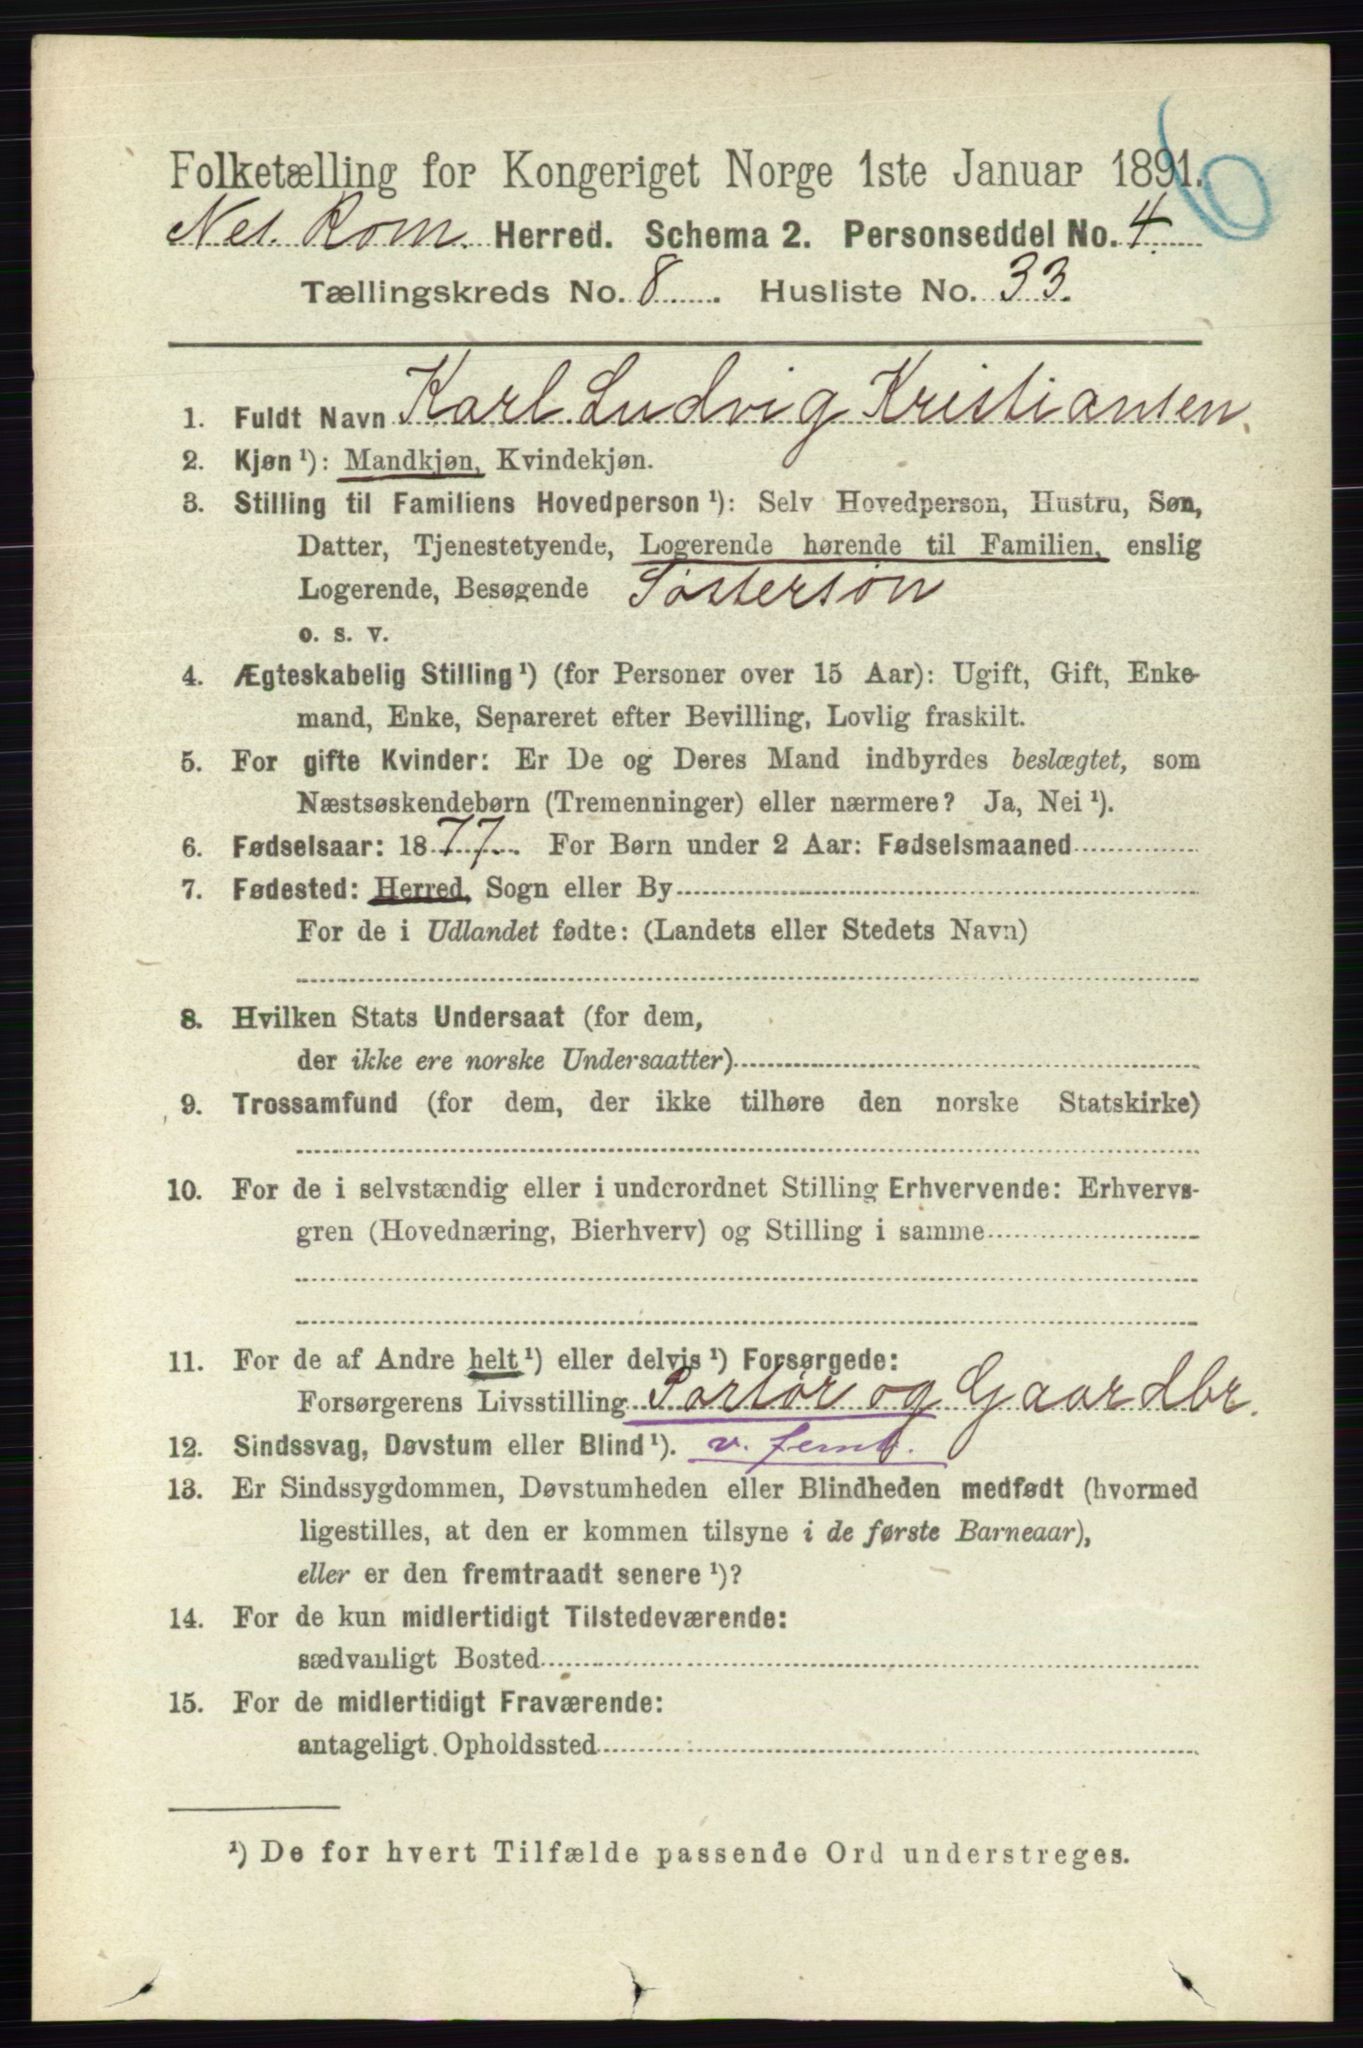 Folketælling for Kongeriget Norge 1ste Januar 1891.
6
Nes. Rom. Herred. Schema 2. Personseddel No. 4.
Tællingskreds No. 8. Husliste No. 33.
1. Fuldt Navn Karl Ludvig Kristiansen.
2. Kjøn¹): Mandkjøn, Kvindekjøn.
3. Stilling til Familiens Hovedperson¹): Selv Hovedperson, Hustru, Søn,
Datter, Tjenestetyende, Logerende hørende til Familien, enslig
Logerende, Besøgende Søstersøn
o. s. v.
4. Ægteskabelig Stilling¹) (for Personer over 15 Aar): Ugift, Gift, Enke-
mand, Enke, Separeret efter Bevilling, Lovlig fraskilt.
5. For gifte Kvinder: Er De og Deres Mand indbyrdes beslægtet, som
Næstsøskendebørn (Tremenninger) eller nærmere? Ja, Nei¹).
6. Fødselsaar: 1877. For Børn under 2 Aar: Fødselsmaaned
7. Fødested: Herred, Sogn eller By
For de i Udlandet fødte: (Landets eller Stedets Navn)
8. Hvilken Stats Undersaat (for dem,
der ikke ere norske Undersaatter)
9. Trossamfund (for dem, der ikke tilhøre den norske Statskirke)
10. For de i selvstændig eller i underordnet Stilling Erhvervende: Erhvervs-
gren (Hovednæring, Bierhverv) og Stilling i samme
11. For de af Andre helt¹) eller delvis¹) Forsørgede:
Forsørgerens Livsstilling Portør og Gaardbr.
12. Sindssvag, Døvstum eller Blind¹). v. Jernb.
13. Er Sindssygdommen, Døvstumheden eller Blindheden medfødt (hvormed
ligestilles, at den er kommen tilsyne i de første Barneaar),
eller er den fremtraadt senere¹)?
14. For de kun midlertidigt Tilstedeværende:
sædvanligt Bosted
15. For de midlertidigt Fraværende:
antageligt Opholdssted
¹) De for hvert Tilfælde passende Ord understreges.